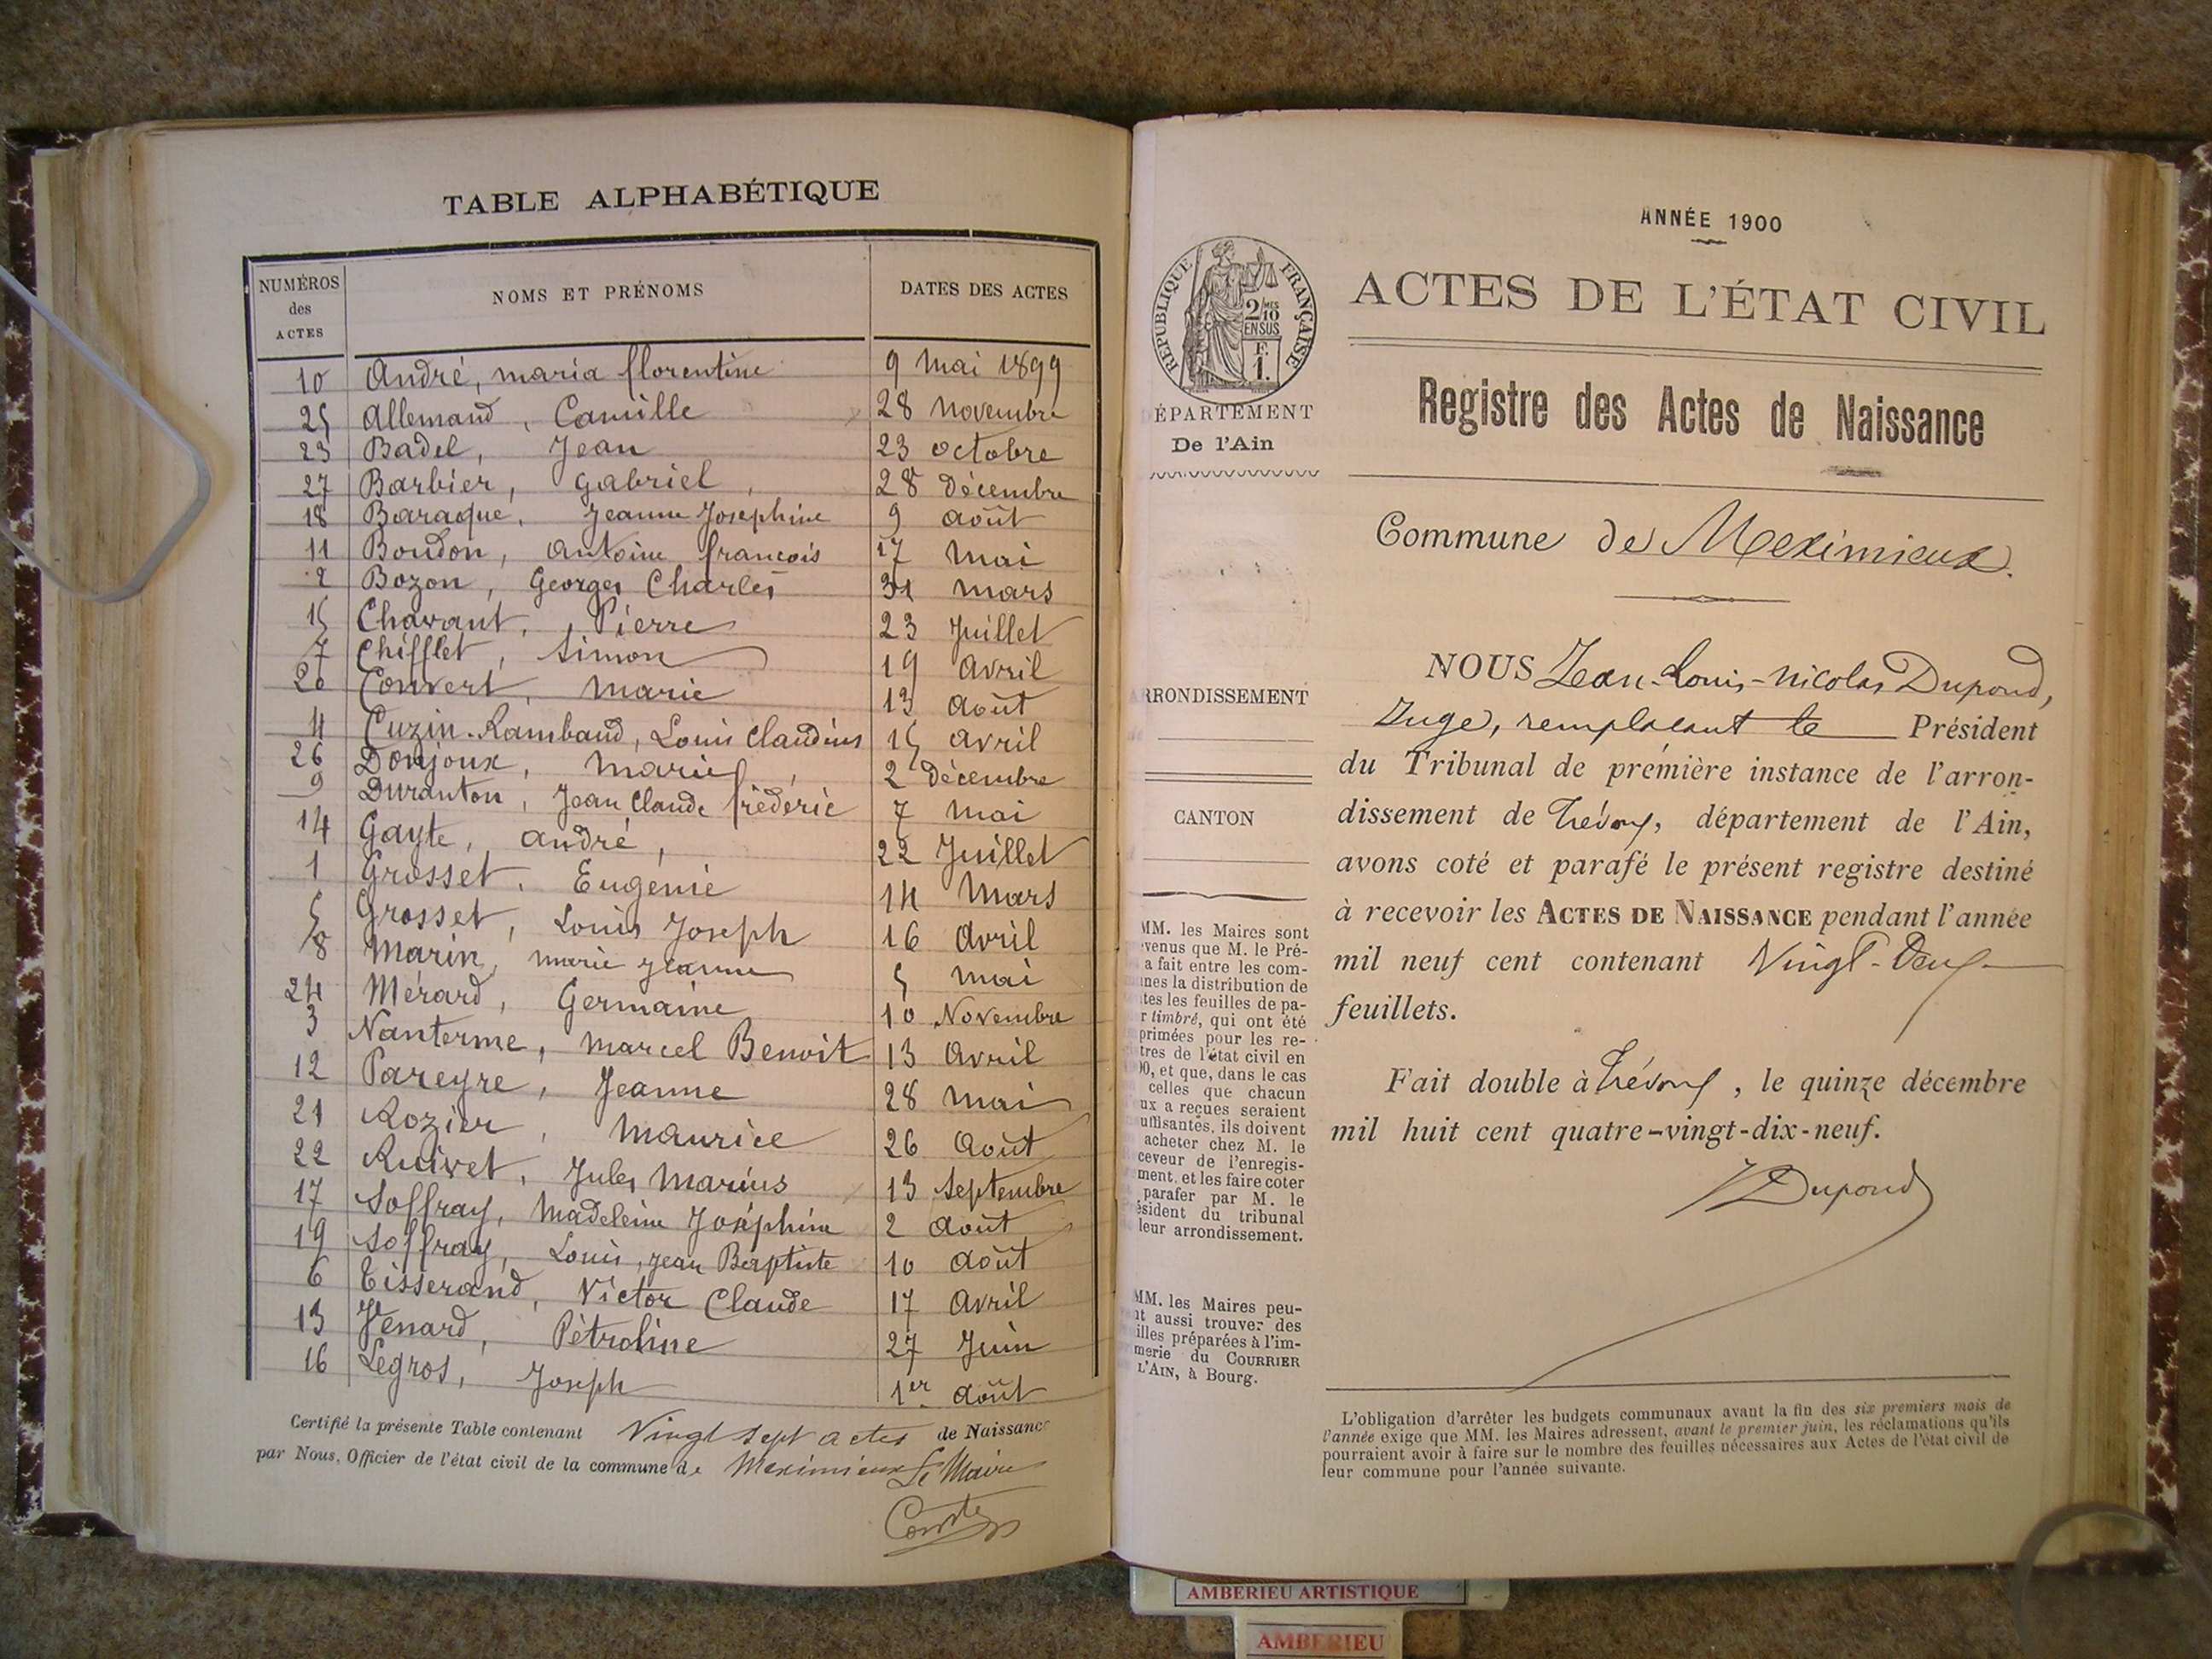 TABLE ALPHABÉTIQUE
NUMÉROS des ACTES NOMS ET PRÉNOMS DATES DES ACTES
10 André, maria florentine 9 mai 1899
25 Allemand, Camille 28 novembre
23 Badel, Jean 23 octobre
27 Barbier, Gabriel, 28 Décembre
18 Baraque, Jeanne Josephine 9 août
11 Boudon, Antoine francois 17 mai
2 Bozon, Georges Charles 31 mars
15 Chavant, Pierre 23 Juillet
7 Chifflet, Simon 19 Avril
20 Convert, Marie 13 Août
4 Cuzin-Rambaud, Louis Claudius 15 avril
26 Donjoux, Marie, 2 Décembre
9 Duranton, Jean Claude frédéric 7 mai
14 Gayte, André, 22 Juillet
1 Grosset, Eugénie 14 Mars
5 Grosset, Louis Joseph 16 Avril
8 Marin, marie jeanne 5 mai
24 Mérard, Germaine 10 Novembre
3 Nanterme, Marcel Benoit 13 Avril
12 Pareyre, Jeanne 28 mai
21 Rozier, Maurice 26 Août
22 Ruivet, Jules Marius 13 Septembre
17 Soffray, Madeleine Joséphine 2 Août
19 Soffray, Louis, jean Baptiste 10 Août
6 Tisserand, Victor Claude 17 Avril
13 Venard, Pétroline 27 Juin
16 Legros, Joseph 1er Août
Certifié la présente Table contenant Vingt sept actes de Naissance
par Nous, Officier de l'état civil de la commune de Meximieux Le Maire
ANNÉE 1900
ACTES DE L'ÉTAT CIVIL
RÉPUBLIQUE FRANÇAISE
2/10 MES
EN SUS
F.
1.
ÉPARTEMENT
De l'Ain
Registre des Actes de Naissance
Commune de Meximieux.
NOUS Jean-Louis-Nicolas Dupond,
Juge, remplacant le Président
du Tribunal de première instance de l'arron-
dissement de Trévoux, département de l'Ain,
avons coté et parafé le présent registre destiné
à recevoir les ACTES DE NAISSANCE pendant l'année
mil neuf cent contenant Vingt-Deux
feuillets.
Fait double à Trévoux, le quinze décembre
mil huit cent quatre-vingt-dix-neuf.
Dupond
RRONDISSEMENT
CANTON
MM. les Maires sont
venus que M. le Pré-
a fait entre les com-
nes la distribution de
tes les feuilles de pa-
r timbré, qui ont été
primées pour les re-
tres de l'état civil en
00, et que, dans le cas
celles que chacun
ux a reçues seraient
uffisantes, ils doivent
acheter chez M. le
ceveur de l'enregis-
ment, et les faire coter
parafer par M. le
ésident du tribunal
leur arrondissement.
MM. les Maires peu-
nt aussi trouver des
illes préparées à l'im-
merie du COURRIER
L'AIN, à Bourg.
L'obligation d'arrêter les budgets communaux avant la fin des six premiers mois de
l'année exige que MM. les Maires adressent, avant le premier juin, les réclamations qu'ils
pourraient avoir à faire sur le nombre des feuilles nécessaires aux Actes de l'état civil de
leur commune pour l'année suivante.
AMBERIEU ARTISTIQUE
AMBERIEU